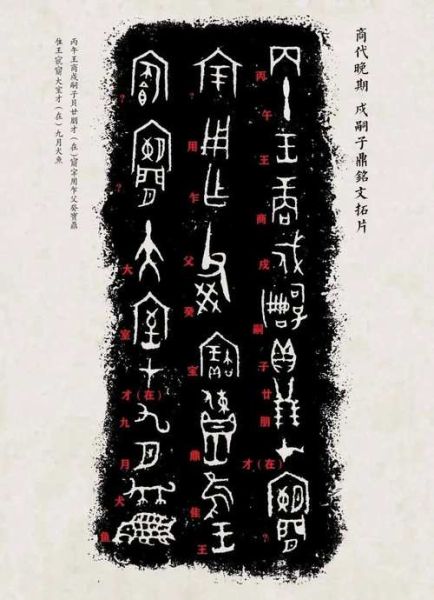 商代晚期 戍嗣子鼎銘文拓片
丙午王商戍嗣子廿朋才（在）?
?用乍父癸宝鼎隹王
??大室才（在）九月犬魚
丙午王商戍嗣子貝廿朋才（在）用乍父癸寶鼎
隹王大室才（在）九月犬魚